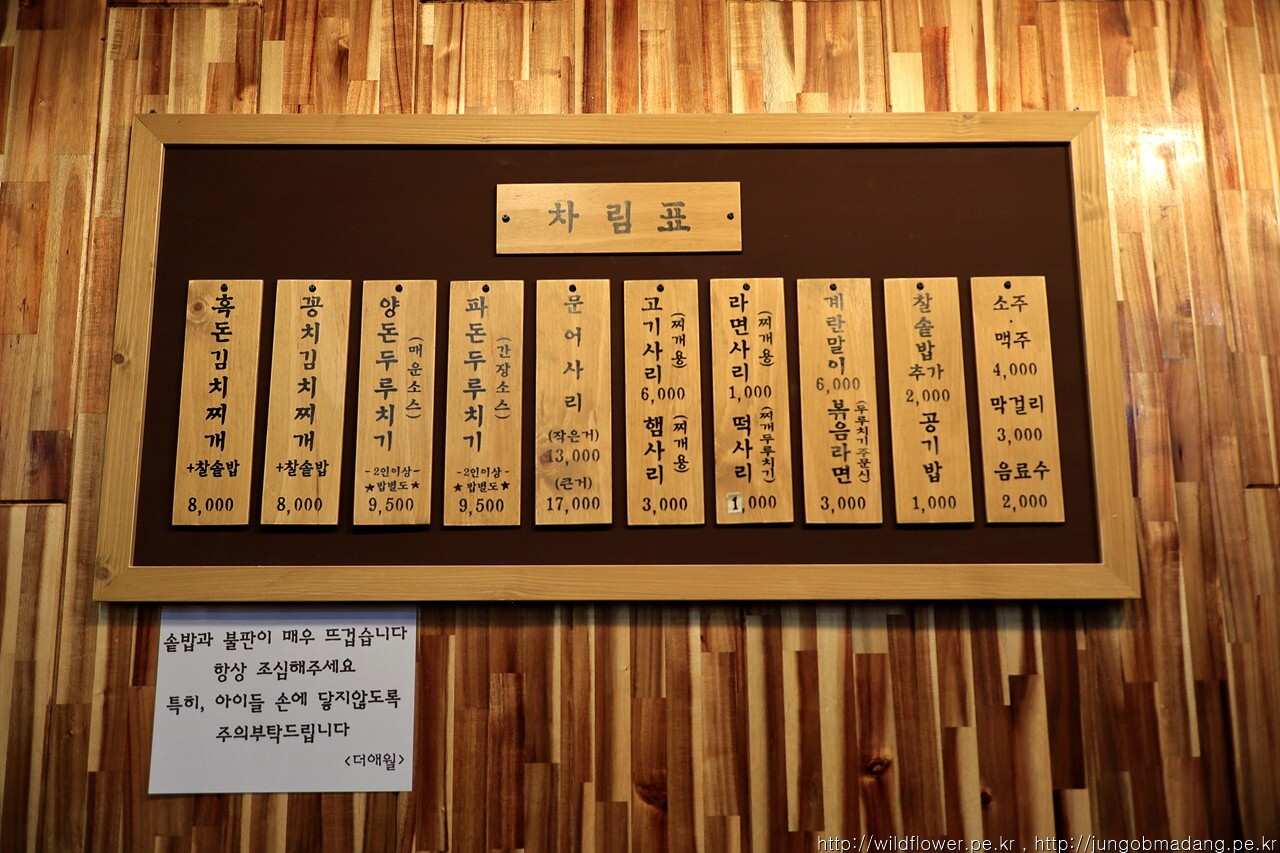 차림표
흑돈김치찌개
+찰솥밥
8,000
꽁치김치찌개
+찰솥밥
8,000
양돈두루치기
(매운소스)
-2인이상-
★밥별도★
9,500
파돈두루치기
(간장소스)
-2인이상-
★밥별도★
9,500
문어사리
(작은거)
13,000
(큰거)
17,000
고기사리
(찌개용)
6,000
햄사리
(찌개용)
3,000
라면사리
(찌개용)
1,000
떡사리
(찌개두루치기)
1,000
계란말이
6,000
볶음라면
(두루치기주문신)
3,000
찰솥밥
추가
2,000
공기밥
1,000
소주
·
맥주
4,000
막걸리
3,000
음료수
2,000
솥밥과 불판이 매우 뜨겁습니다
항상 조심해주세요
특히, 아이들 손에 닿지않도록
주의부탁드립니다
<더애월>
http://wildflower.pe.kr , http://jungobmadang.pe.kr